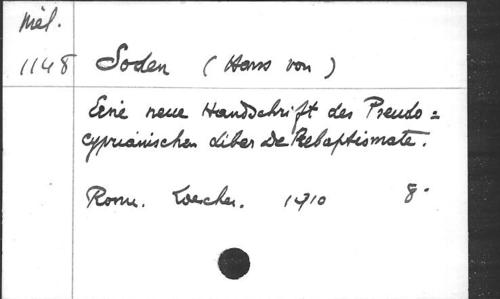 Mél.
1148 Soden (Hans von)
Eine neue Handschrift des Pseudo=
cyprianischen Liber de Rebaptismate.
Rom. Loescher. 1910 8°